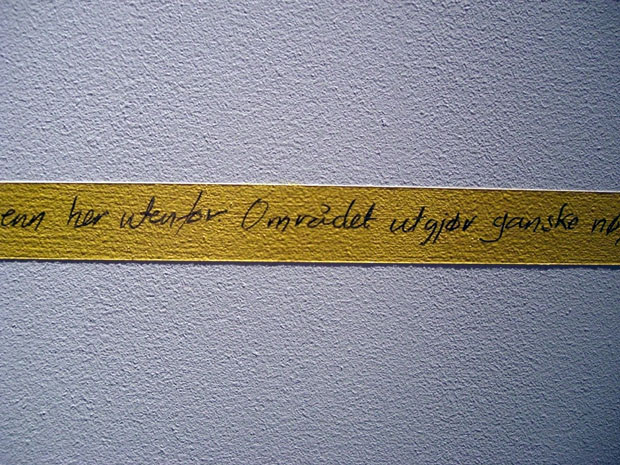 enn her utenfor Området utgjør ganske